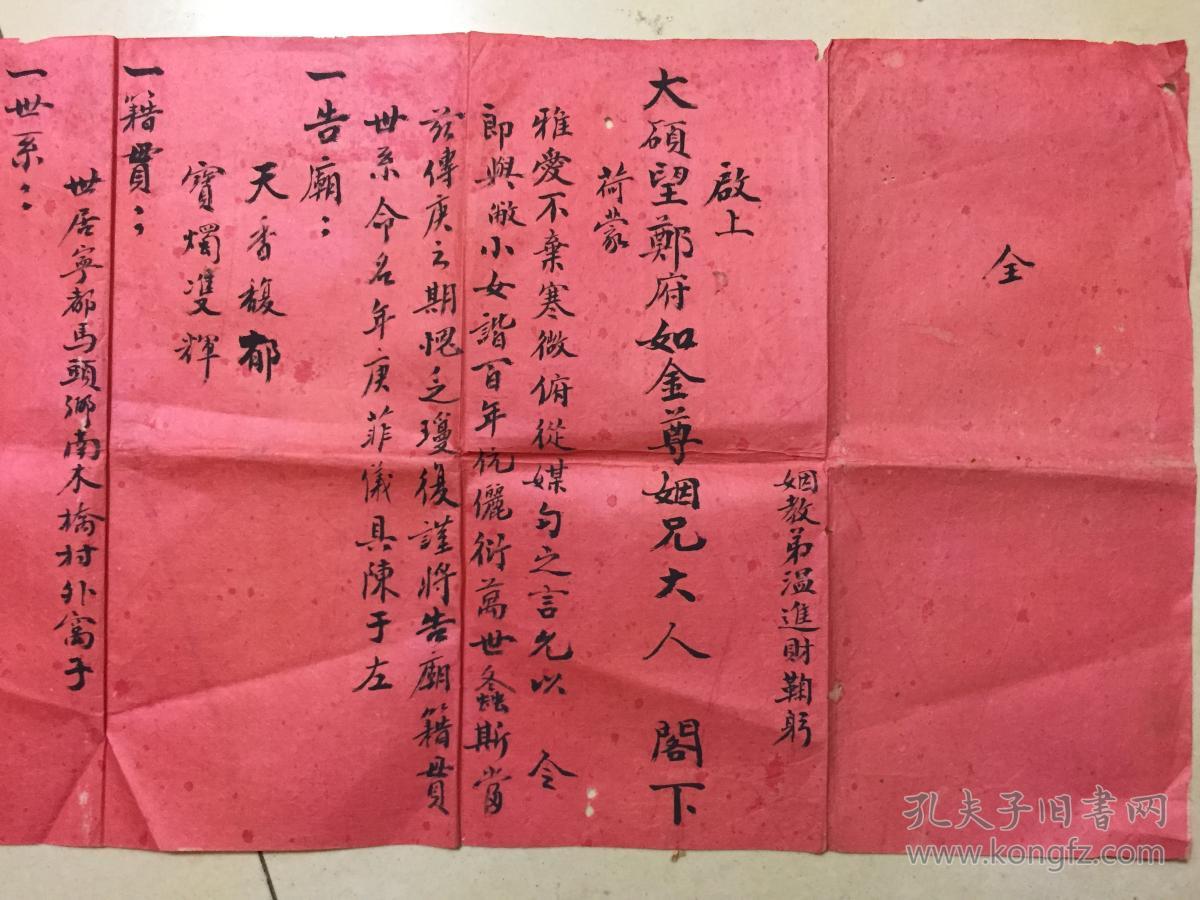 全
姻教弟溫進財鞠躬
啟上
大碩望鄭府如金尊姻兄大人 閣下
荷蒙
雅愛不棄寒微俯從媒勺之言允以 令
郎與敝小女諧百年伉儷衍萬世螽斯當
茲傳庚之期愧乏瓊復謹將告廟籍貫
世系命名年庚菲儀具陳于左
一告廟：
天香馥郁
寶燭雙輝
一籍貫：
世居寧都馬頭鄉南木橋村外窩子
一世系：
孔夫子旧书网
www.kongfz.com